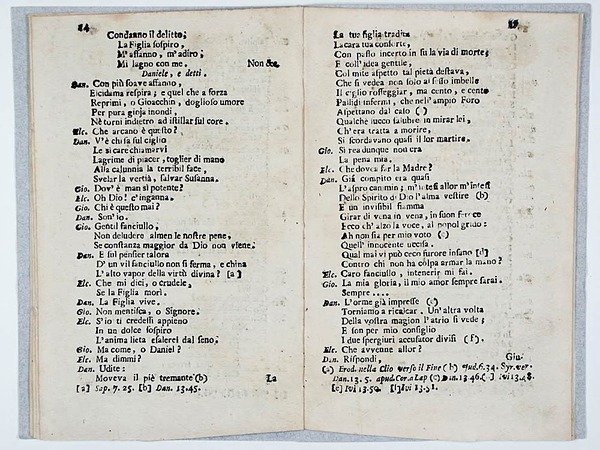 14
Condanno il delitto;
La Figlia sospiro,
M'affanno, m'adiro;
Mi lagno con me. Non &c.
Daniele, e detti.
Dan. Con più soave affanno,
Elcidama respira; e quel che a forza
Reprimi, o Gioacchin, doglioso umore
Per pura gioja inondi,
Nè torni indietro ad istillar sul core.
Elc. Che arcano è questo?
Dan. V'è chi fa sul ciglio
Le sì care chiamarvi
Lagrime di piacer, toglier di mano
Alla calunnia la terribil face,
Svelar la vertià, salvar Susanna.
Gio. Dov' è man sì potente?
Elc. Oh Dio! c'inganna.
Gio. Chi è questo mai?
Dan. Son'io.
Gio. Gentil fanciullo,
Non deludere almen le nostre pene,
Se constanza maggior da Dio non viene.
Dan. E sul pensier talora
D' un vil fanciullo non si ferma, e china
L'alto vapor della virtù divina? [a]
Elc. Che mi dici, o crudele,
Se la Figlia morì.
Dan. La Figlia vive.
Gio. Non mentisca, o Signore.
Elc. S'io ti credessi appieno
In un dolce sospiro
L'anima lieta esalerei dal seno.
Gio. Ma come, o Daniel?
Elc. Ma dimmi?
Dan. Udite:
Moveva il piè tremante (b)
La
[a] Sap. 7. 25. [b] Dan. 13. 45.
15
La tuo figlia tradita
La cara tua consorte,
Con passo incerto in su la via di morte;
E coll' idea gentile,
Col mite aspetto tal pietà destava,
Che si vedea non solo al sesso imbelle
Il ciglio rosseggiar, ma cento, e cento
Pallidi infermi, che nell' ampio Foro
Aspettano dal caso ( )
Qualche succo salubre in mirar lei,
Ch'era tratta a morire,
Si scordavano quasi il lor martire.
Gio. Sì rea dunque non era
La pena mia.
Elc. Che dovea far la Madre?
Dan. Già compito era quasi
L'aspro cammin; m'intesi allor m'intesi
Dello Spirito di Dio l'alma vestire (b)
E un invisibil fiamma
Girar di vena in vena, in suon feroce
Ecco ch'alzo la voce, al popol grido:
Ah non sia per mio voto (c)
Quell' innocente uccisa.
Qual mai vi può ecco furore insano [d]
Contro chi non ha colpa armar la mano?
Elc. Caro fanciullo, intenerir mi fai.
Gio. La mia gloria, il mio amor sempre sarai.
Sempre ....
Dan. L'orme già impresse (e)
Torniamo a ricalcar. Un'altra volta
Della vostra magion l'atrio si vede;
E son per mio consiglio
I due spergiuri accusator divisi (f).
Elc. Che avvenne allor?
Dan. Rispondi,
Giu-
(a) Erod. nella Clio verso il Fine (b) Jud. 6. 34. Syr. ver.
Dan. 13. 5. apud. Cor. a Lap (c) Dan. 13. 46. [ ] ivi 13. 48.
[e] Ivi 13. 50. [f] Ivi 13. 51.